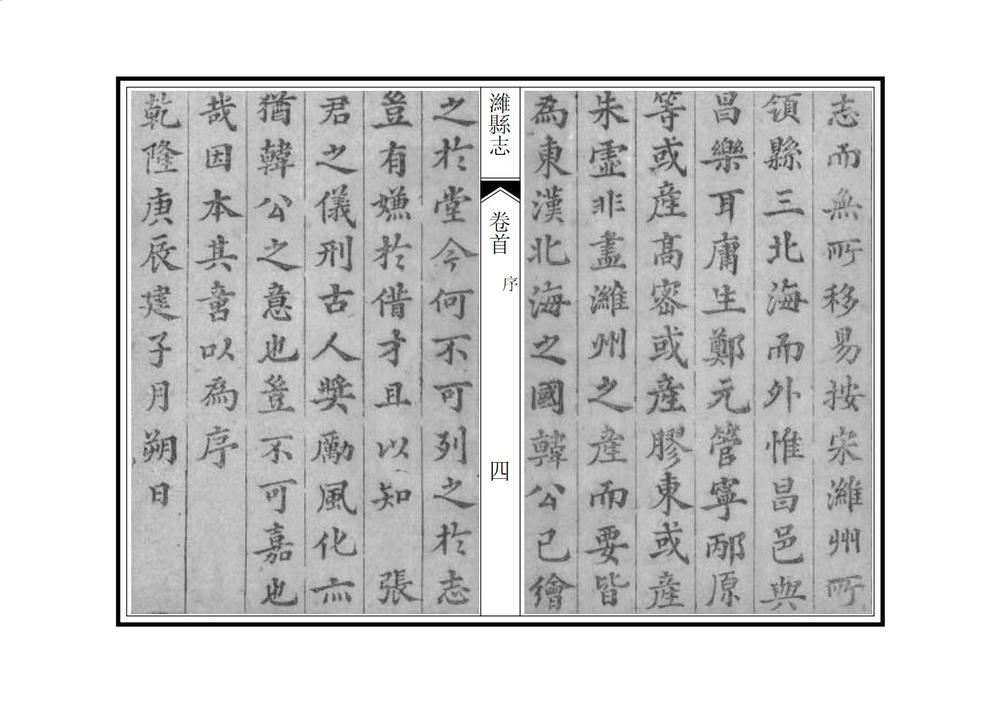 志而無所移易按宋濰州所
領縣三北海而外惟昌邑與
昌樂耳庸生鄭元管寧邴原
等或産高密或産膠東或産
朱虛非盡濰州之産而要皆
為東漢北海之國韓公已繪
濰縣志
卷首
序
四
之於堂今何不可列之於志
豈有嫌於借才且以知 張
君之儀刑古人奬勵風化亦
猶韓公之意也豈不可嘉也
哉因本其意以為序
乾隆庚辰建子月朔日